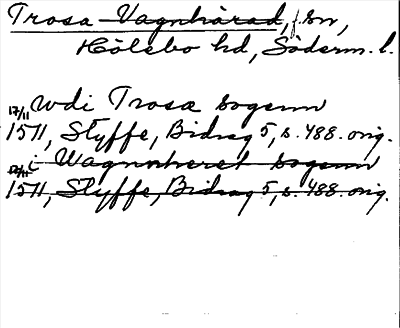 Trosa Vagnhärad, sn,
Hölebo hd, Söderm. l.
17/11 wdi Trosæ sogenn
1511, Styffe, Bidrag 5, s. 488. orig.
i Wagnnheret sogenn
1511, Styffe, Bidrag 5, s. 488. orig.